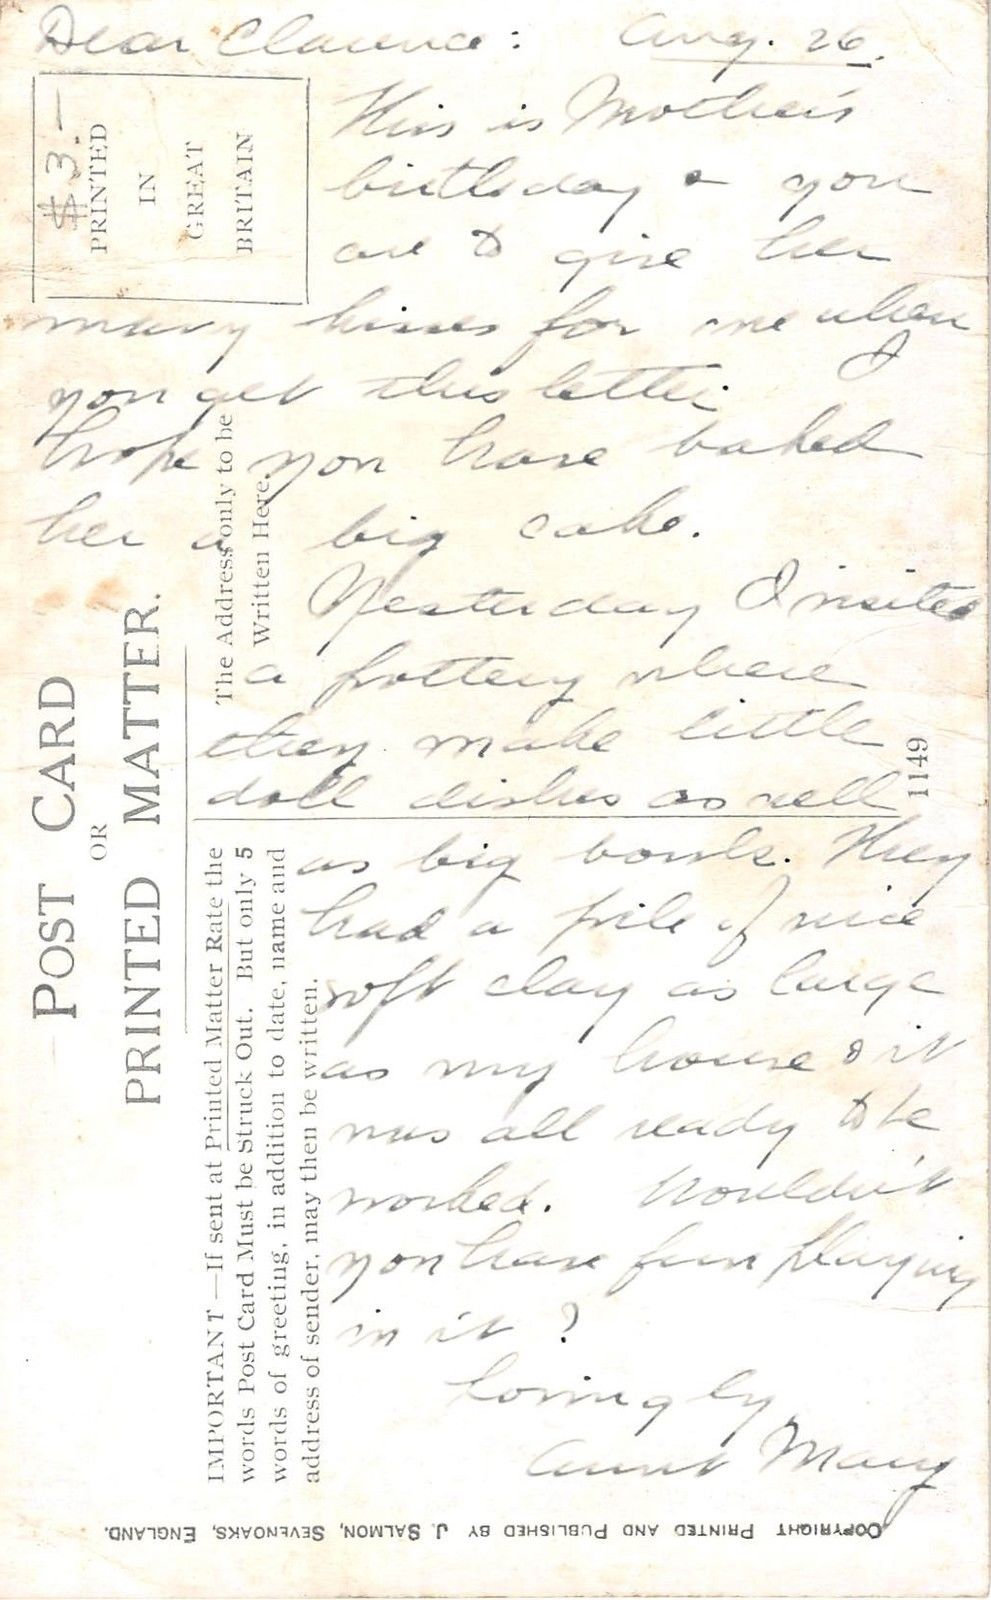 Dear Clarence: Aug. 26.
This is Mother's
birthday & you
are to give her
many kisses for me when
you get this letter. I
hope you have baked
her a big cake.
Yesterday I visited
a pottery where
they make little
doll dishes as well
as big bowls. They
had a pile of nice
soft clay as large
as my house & it
was all ready to be
worked. Wouldn't
you have fun playing
in it?
Lovingly
Aunt Mary
$3.—
PRINTED
IN
GREAT
BRITAIN
POST CARD
OR
PRINTED MATTER.
The Address only to be
Written Here.
IMPORTANT—If sent at Printed Matter Rate the
words Post Card Must be Struck Out. But only 5
words of greeting, in addition to date, name and
address of sender, may then be written.
1149
COPYRIGHT PRINTED AND PUBLISHED BY J. SALMON, SEVENOAKS, ENGLAND.